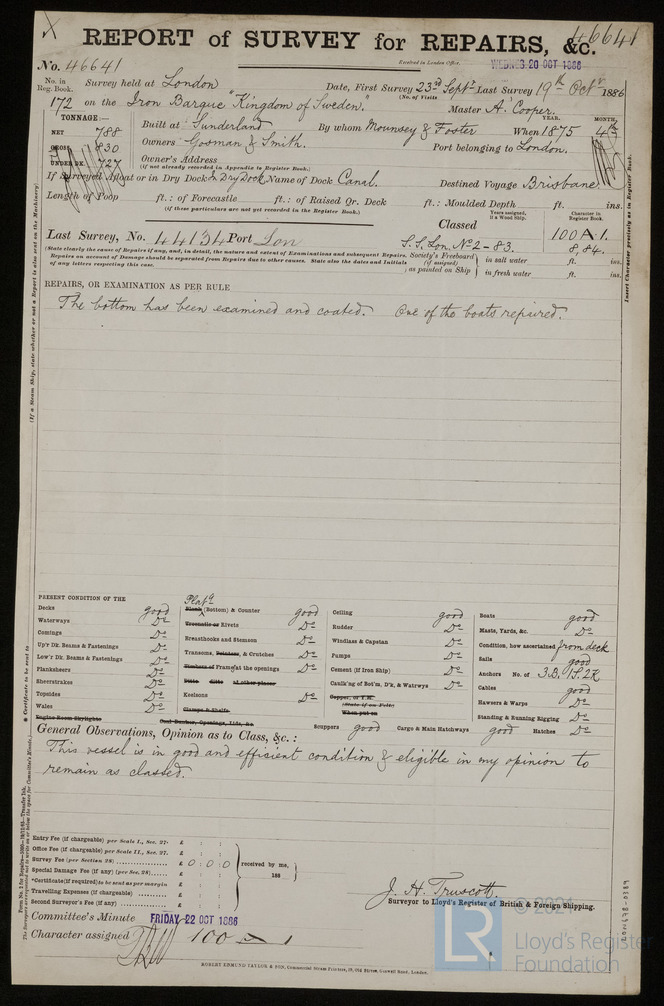 REPORT of SURVEY for REPAIRS, &c. 46641
No. 46641
Received in London Office, WEDNES. 20 OCT 1886
No. in Reg. Book. Survey held at London
Date, First Survey 23rd Septr Last Survey 19th Octr 1886
172 on the Iron Barque "Kingdom of Sweden."
(No. of Visits
Master A. Cooper.
TONNAGE:—
YEAR. MONTH.
NET 788
Built at Sunderland By whom Mounsey & Foster When 1875 4th
GROSS 830
Owners Gosman & Smith. Port belonging to London.
UNDER DK. 727
Owner's Address
(if not already recorded in Appendix to Register Book.)
If Surveyed Afloat or in Dry Dock in Dry Dock Name of Dock Canal. Destined Voyage Brisbane.
Length of Poop ft.: of Forecastle ft.: of Raised Qr. Deck ft.: Moulded Depth ft. ins.
(if these particulars are not yet recorded in the Register Book.)
Years assigned, if a Wood Ship.
Character in Register Book.
Classed 100 A 1.
Last Survey, No. 44134 Port Lon
S.S. Lon. No 2 - 83. 8,84.
(State clearly the cause of Repairs if any, and, in detail, the nature and extent of Examinations and subsequent Repairs.
Repairs on account of Damage should be separated from Repairs due to other causes. State also the dates and initials
of any letters respecting this case.
Society's Freeboard (if assigned) as painted on Ship
in salt water ft. ins.
in fresh water ft. ins.
REPAIRS, OR EXAMINATION AS PER RULE
The bottom has been examined and coated. One of the boats repaired.
(If a Steam Ship, state whether or not a Report is also sent on the Machinery)
Insert Character precisely as in Register Book.
PRESENT CONDITION OF THE
Decks good
Waterways Do
Comings Do
Up'r Dk. Beams & Fastenings Do
Low'r Dk. Beams & Fastenings Do
Planksheers Do
Sheerstrakes Do
Topsides Do
Wales Do
Engine Room Skylights
Platg
Plank (Bottom) & Counter good
Treenails or Rivets Do
Breasthooks and Stemson Do
Transoms, Pointers, & Crutches Do
Timbers of Frames at the openings Do
Ditto ditto at other places
Keelsons Do
Clamps & Shelfs
Coal Bunker, Openings, Lids, &c.
Ceiling good
Rudder Do
Windlass & Capstan Do
Pumps Do
Cement (if Iron Ship) Do
Caulk'ng of Bot'm, D'k, & Watrwys Do
Copper, or Y.M.
(State if on Felt)
When put on
Scuppers good Cargo & Main Hatchways good Hatches Do
Boats good
Masts, Yards, &c. Do
Condition, how ascertained from deck
Sails good
Anchors No. of 3.B, 1S.2K
Cables good
Hawsers & Warps Do
Standing & Running Rigging Do
General Observations, Opinion as to Class, &c.:
This vessel is in good and efficient condition & eligible in my opinion to
remain as classed.
Entry Fee (if chargeable) per Scale I., Sec. 27. £ : :
Office Fee (if chargeable) per Scale II., Sec. 27. £ : :
Survey Fee (per Section 28) £ 0 : 0 : 0
Special Damage Fee (if any) (per Sec. 28) £ : :
*Certificate (if required) to be sent as per margin
Travelling Expenses (if chargeable) £
Second Surveyor's Fee (if any) £
received by me,
188
J. H. Truscott.
Surveyor to Lloyd's Register of British & Foreign Shipping.
Committee's Minute FRIDAY 22 OCT 1886
Character assigned 100 A 1
ROBERT EDMUND TAYLOR & SON, Commercial Steam Printers, 19, Old Street, Goswell Road, London.
* Certificate to be sent to
LR
© 2021
Lloyd's Register
Foundation